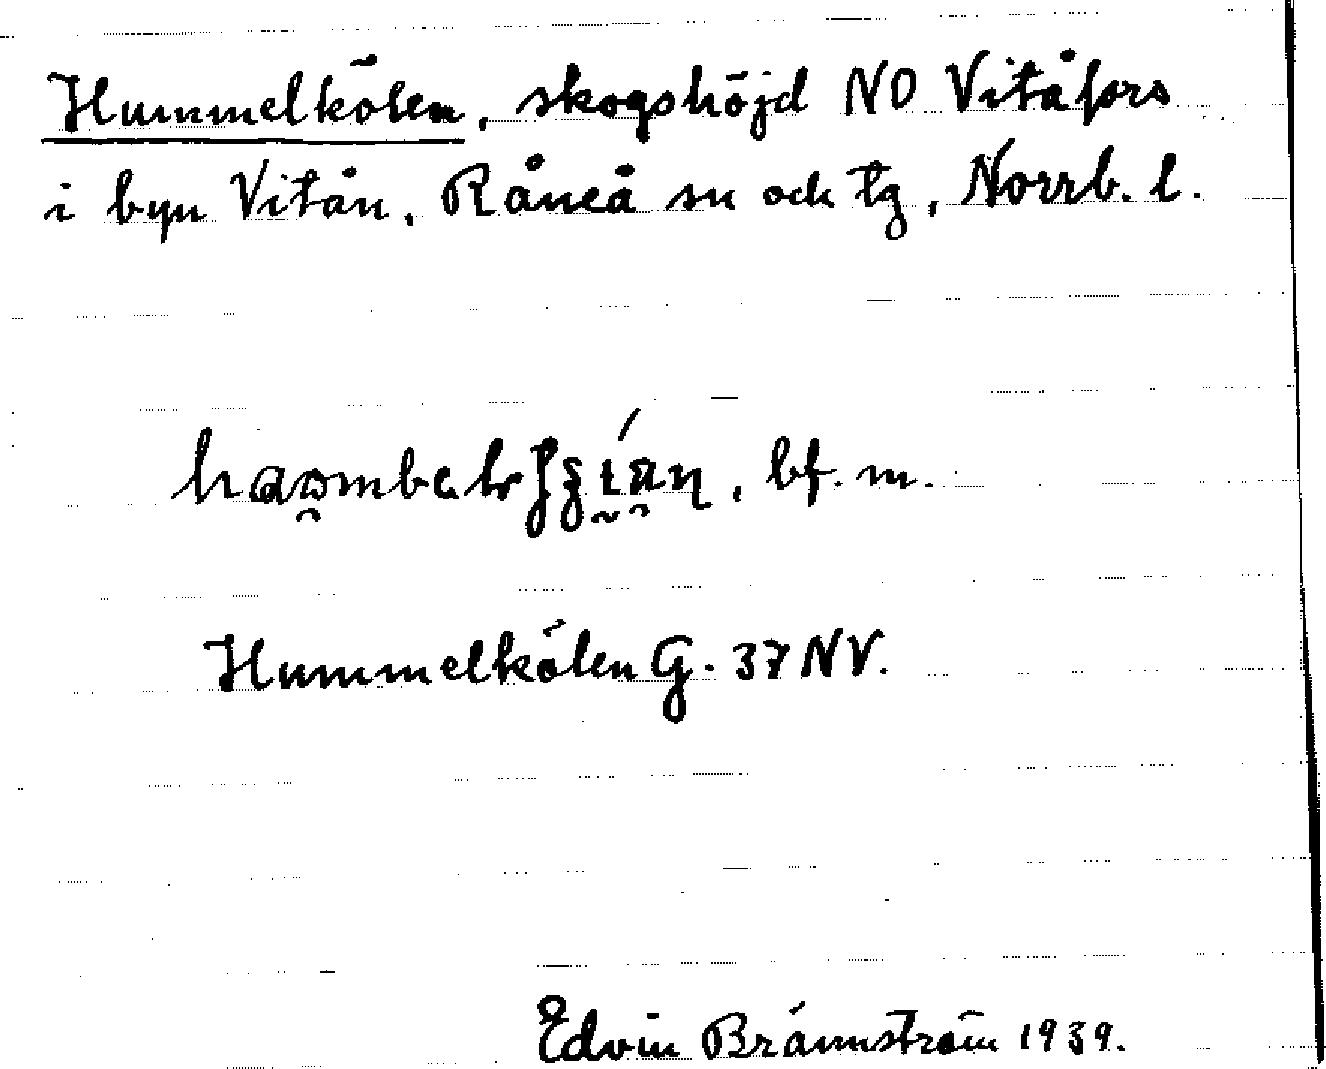 Hummelkölen, skogshöjd NO Vitåfors
i byn Vitån, Råneå sn och tg, Norrb. l.
bf. m.
Hummelkölen G. 37 NV.
Edvin Brännström 1939.